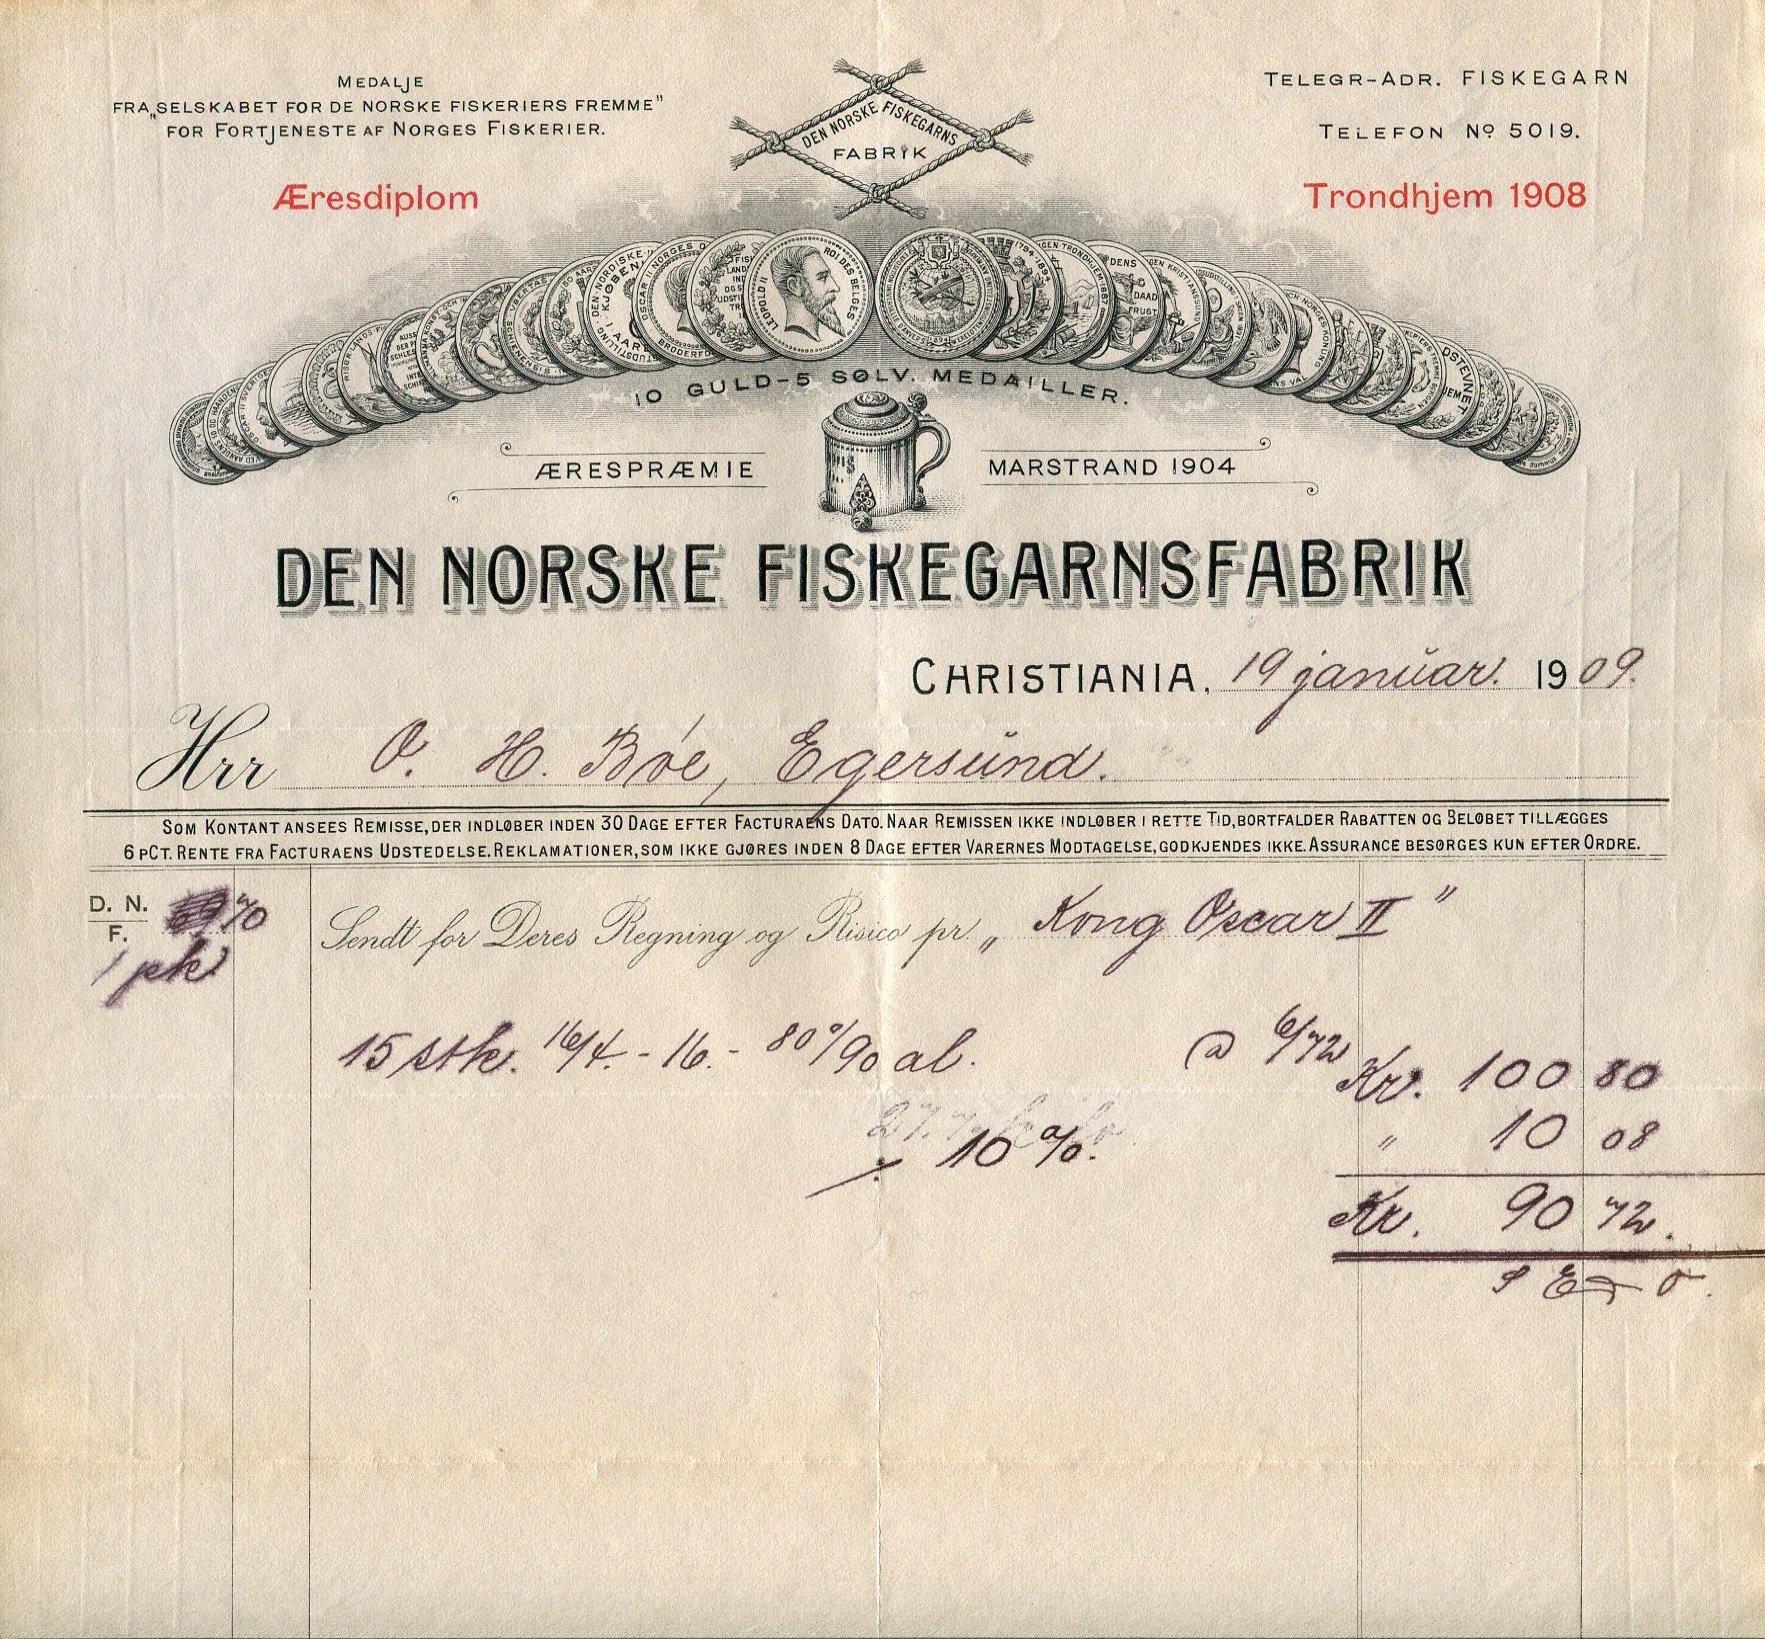 MEDALJE
FRA „SELSKABET FOR DE NORSKE FISKERIERS FREMME"
FOR FORTJENESTE AF NORGES FISKERIER.
Æresdiplom
DEN NORSKE FISKEGARNS
FABRIK
TELEGR-ADR. FISKEGARN
TELEFON No 5019.
Trondhjem 1908
LEOPOLD II ROI DES BELGES
10 GULD-5 SØLV. MEDAILLER.
ÆRESPRÆMIE MARSTRAND 1904
DEN NORSKE FISKEGARNSFABRIK
CHRISTIANIA, 19 januar. 1909.
Hrr O. H. Bøe, Egersund.
SOM KONTANT ANSEES REMISSE, DER INDLØBER INDEN 30 DAGE EFTER FACTURAENS DATO. NAAR REMISSEN IKKE INDLØBER I RETTE TID, BORTFALDER RABATTEN OG BELØBET TILLÆGGES
6 PCT. RENTE FRA FACTURAENS UDSTEDELSE. REKLAMATIONER, SOM IKKE GJØRES INDEN 8 DAGE EFTER VARERNES MODTAGELSE, GODKJENDES IKKE. ASSURANCE BESØRGES KUN EFTER ORDRE.
D. N. 70
F.
1 pk
Sendt for Deres Regning og Risico pr. „Kong Oscar II"
15 stk. 16/4. - 16. - 80%90 al. @ 6/72 Kr. 100 80
÷ 10 %. " 10 08
Kr. 90 72.
S E & O.